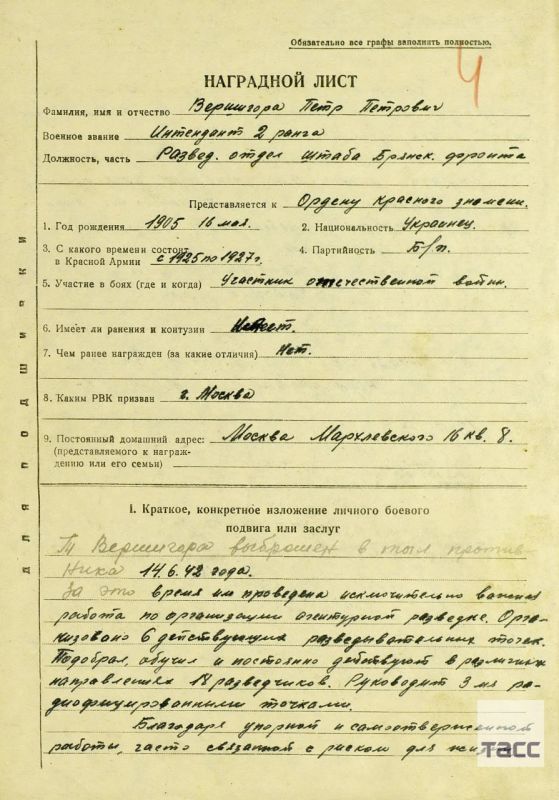 Обязательно все графы заполнять полностью.
4
НАГРАДНОЙ ЛИСТ
Фамилия, имя и отчество Вершигора Петр Петрович
Военное звание Интендант 2 ранга
Должность, часть Развед. отдел штаба Брянск. фронта
Представляется к Ордену Красного знамени.
1. Год рождения 1905 16 мая. 2. Национальность Украинец.
3. С какого времени состоит
в Красной Армии с 1925 по 1927 г. 4. Партийность Б/п.
5. Участие в боях (где и когда) Участник отечественной войны.
6. Имеет ли ранения и контузии
7. Чем ранее награжден (за какие отличия) Нет.
8. Каким РВК призван г. Москва
9. Постоянный домашний адрес: Москва Мархлевского 16 кв. 8.
(представляемого к награж-
дению или его семьи)
для подшивки
I. Краткое, конкретное изложение личного боевого
подвига или заслуг
Вершигора выброшен в тыл против-
ника 14.6.42 года.
За это время им проведена исключительно важная
работа по организации агентурной разведке. Орга-
низовано 6 действующих разведывательных точек.
Подобрал, обучил и постоянно действуют в различных
направлениях 18 разведчиков. Руководит 3-мя ра-
диофицированными точками.
Благодаря упорной и самоотверженной
работы, часто связанной с риском для жизни
ТАСС